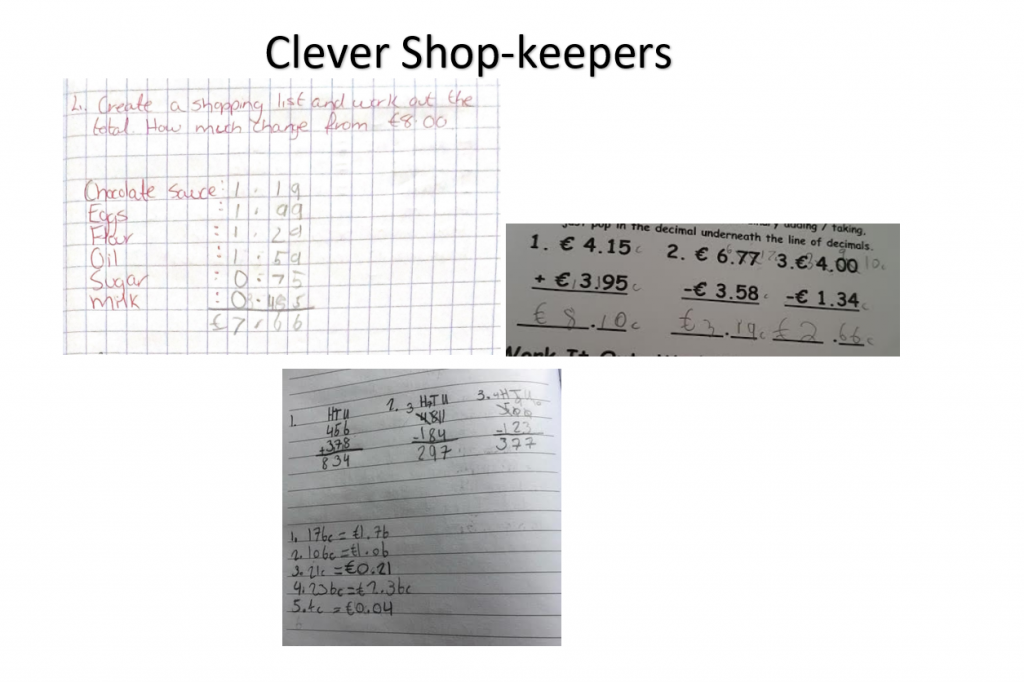 Clever Shop-keepers
2. Create a shopping list and work out the
total. How much change from €8.00
Chocolate Sauce : 1.19
Eggs : 1.99
Flour : 1.29
Oil : 1.59
Sugar : 0.75
milk
€7.66
just pop in the decimal underneath the line of decimals.
1. € 4.15c
+ € 3.95c
€ 8.10c
2. € 6.77
-€ 3.58c
€3.19c
3. € 4.00
-€ 1.34c
€2.66c
1. HTU
456
+378
834
2. HTU
481
-184
297
3. HTU
500
-123
377
1. 176c = €1.76
2. 106c = €1.06
3. 21c = €0.21
4. 236c = €2.36c
5. 4c = €0.04